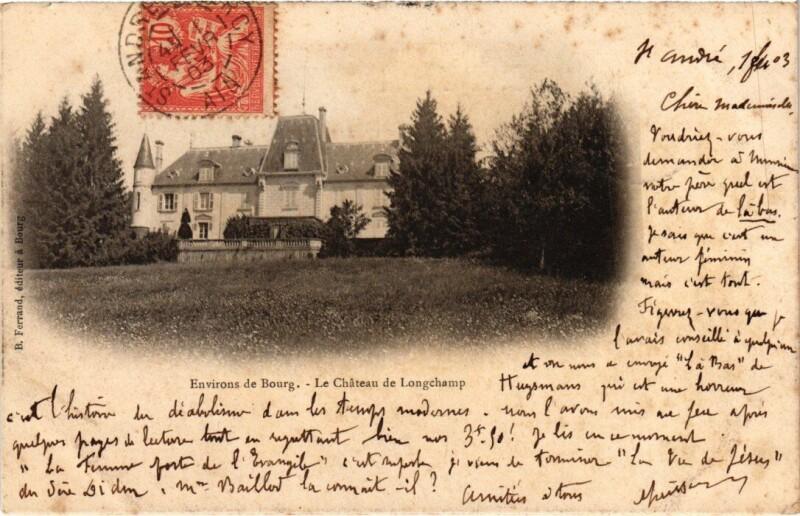 St André, 1 03
Chère Mademoiselle
Voudriez-vous
demander à Monsieur
votre père quel est
l'auteur de là bas.
Je sais que c'est un
auteur féminin
mais c'est tout.
Figurez-vous que je
l'avais conseillé à quelqu'un
et on nous a envoyé "Là Bas" de
Huysmans qui est une horreur
c'est l'histoire du diabolisme dans les temps modernes. nous l'avons mis au feu après
quelques pages de lecture tout en regrettant bien nos 3f.50! Je lis en ce moment
"La Femme forte de l'Evangile" c'est superbe je viens de terminer "La Vie de Jésus"
du Père Didon, Mme la connait-il?
Amitiés à tous
Environs de Bourg. - Le Château de Longchamp
B. Ferrand, éditeur à Bourg
10